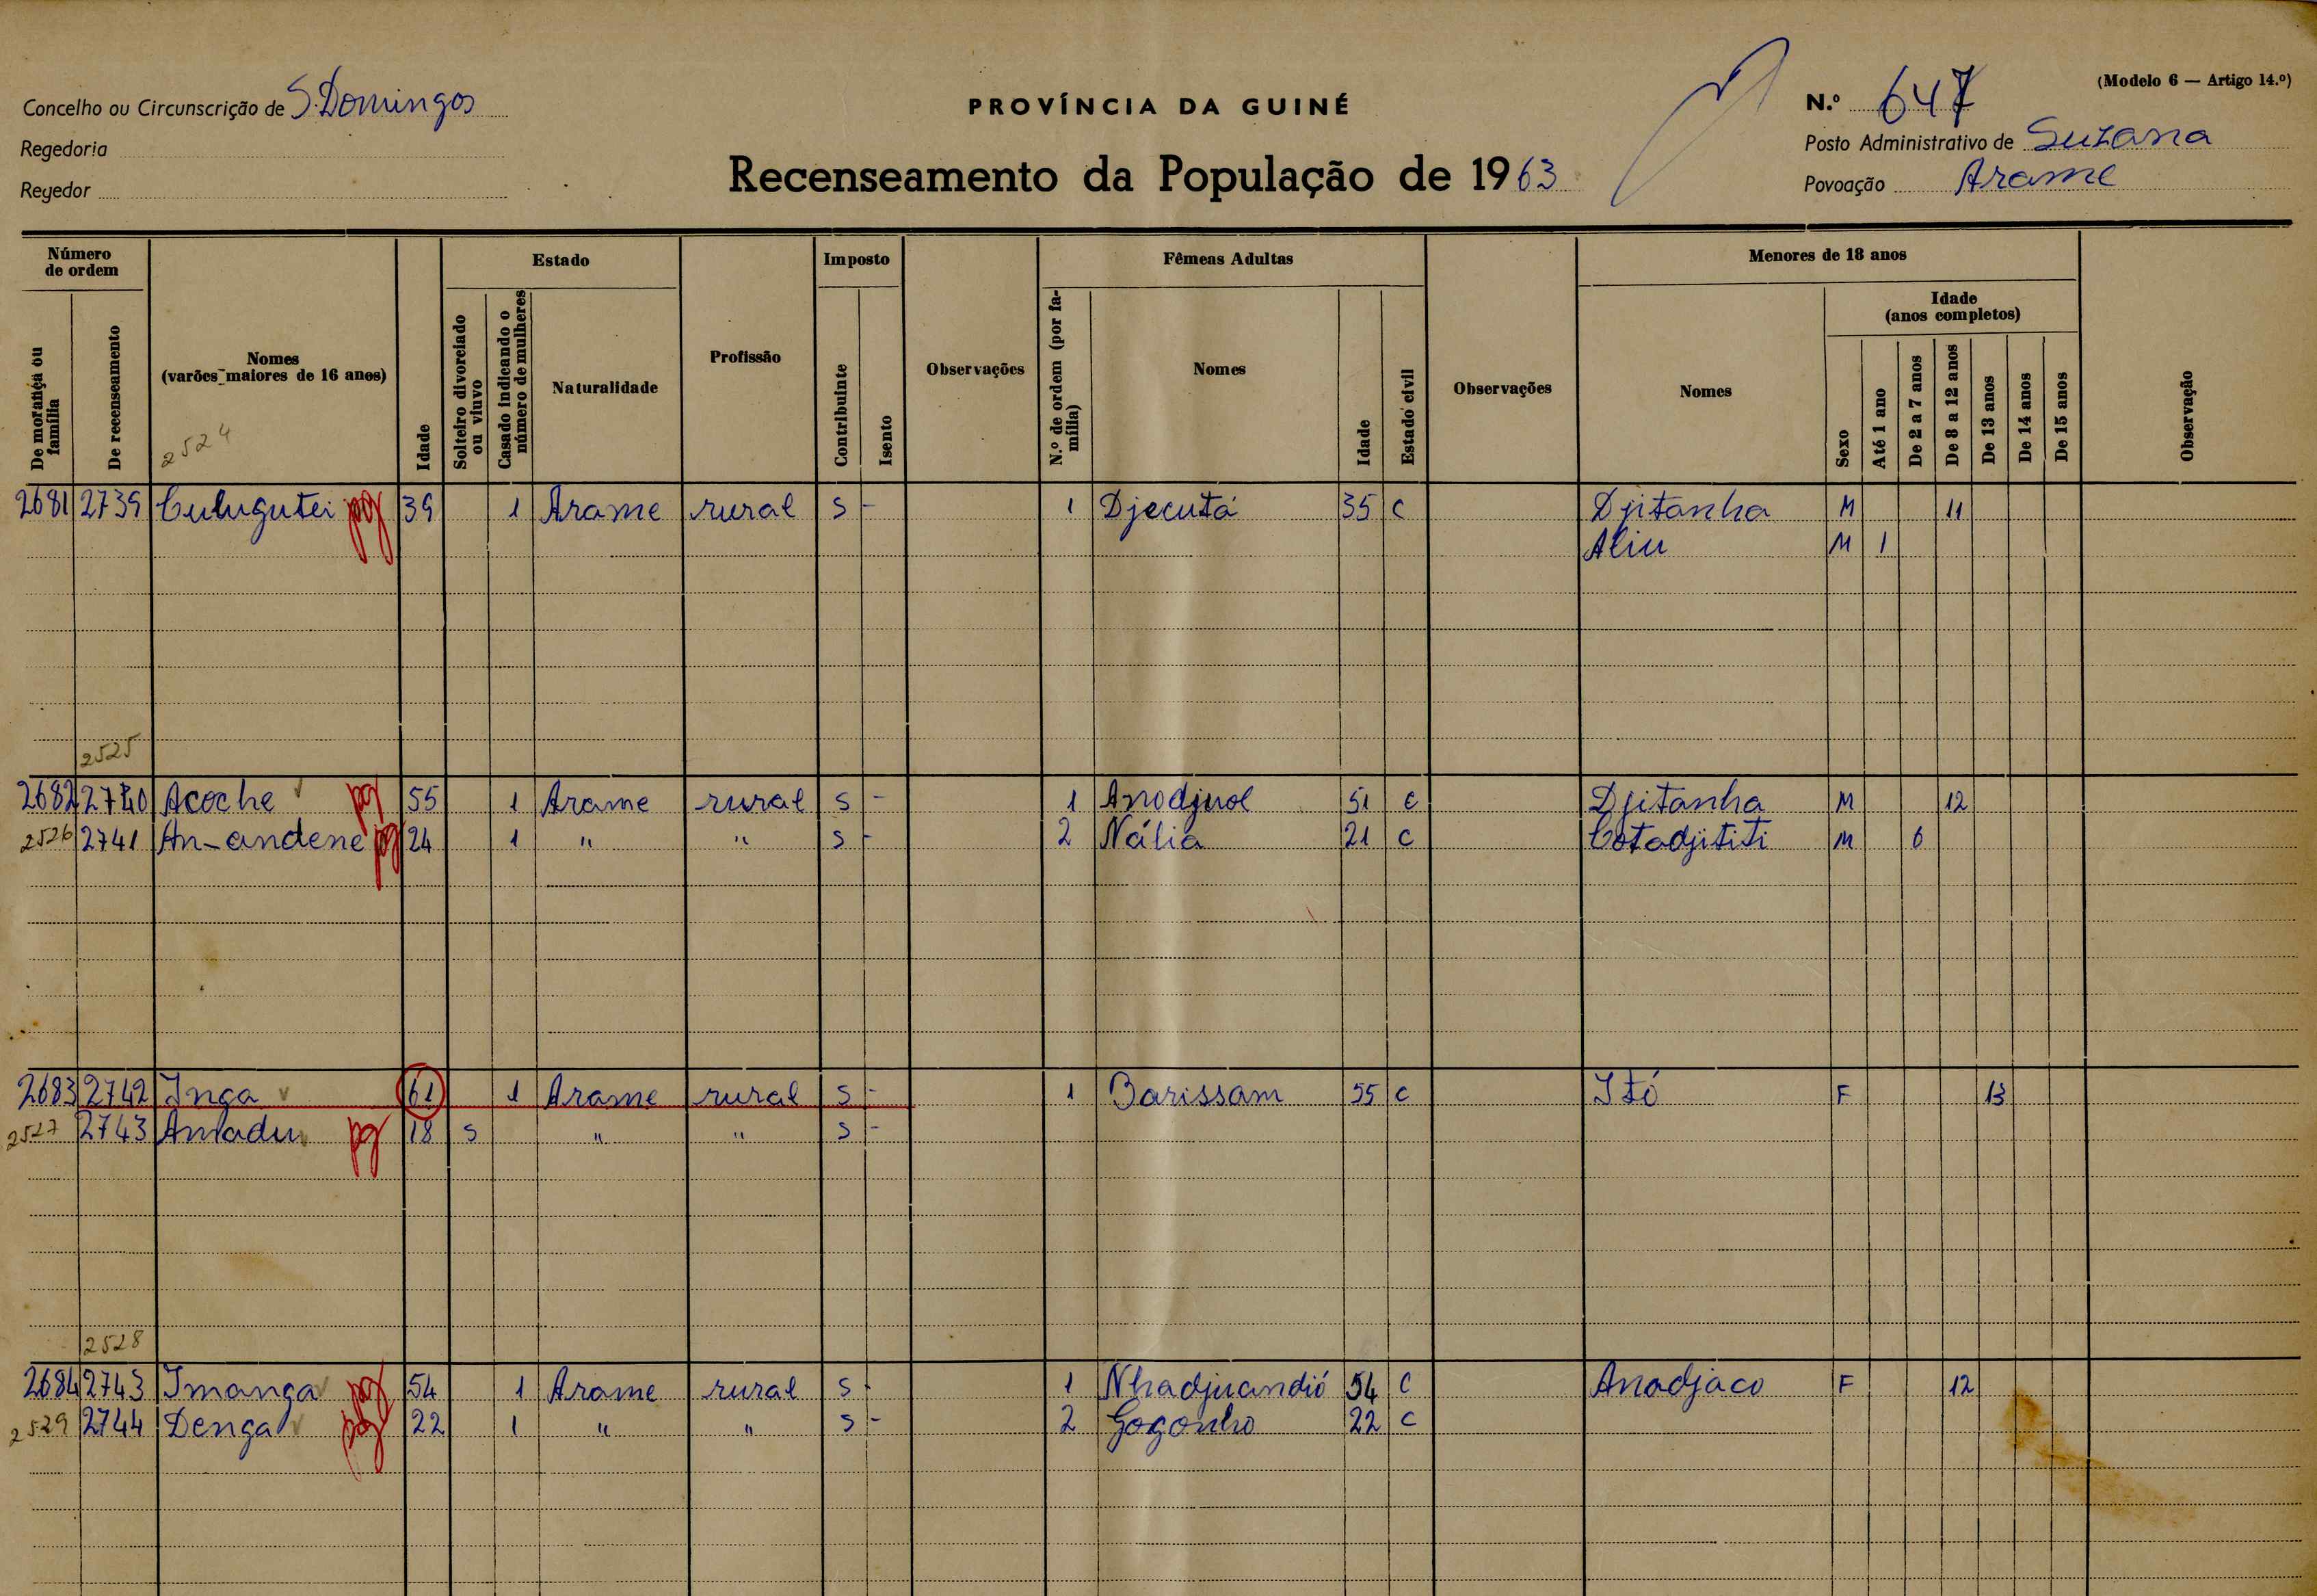 (Modelo 6 — Artigo 14.º)
Concelho ou Circunscrição de S. Domingos
PROVÍNCIA DA GUINÉ
N.º 647
Regedoria
Posto Administrativo de Suzana
Regedor
Recenseamento da População de 1963
Povoação Arame
Número de ordem
Estado
Imposto
Fêmeas Adultas
Menores de 18 anos
De morança ou família
De recenseamento
Nomes (varões maiores de 16 anos)
Idade
Solteiro divorciado ou viuvo
Casado indicando o número de mulheres
Naturalidade
Profissão
Contribuinte
Isento
Observações
N.º de ordem (por família)
Nomes
Idade
Estado civil
Observações
Nomes
Sexo
Idade (anos completos)
Até 1 ano
De 2 a 7 anos
De 8 a 12 anos
De 13 anos
De 14 anos
De 15 anos
Observação
2524
2681 2739 Culugutei pg 39 1 Arame rural s - 1 Djecutá 35 C Djitanha M 11
Aliu M 1
2525
2682 2740 Acoche pg 55 1 Arame rural s - 1 Anodjuol 51 C Djitanha M 12
2526 2741 An-andene pg 24 1 " " s - 2 Nália 21 C Cotadjititi M 6
2683 2742 Inga 61 1 Arame rural s - 1 Barissam 55 C Itó F 13
2527 2743 Amadu pg 18 s " " s -
2528
2684 2743 Imanga pg 54 1 Arame rural s - 1 Nhadjuandió 54 C Anadjaco F 12
2529 2744 Denga pg 22 1 " " s - 2 Gogonho 22 C